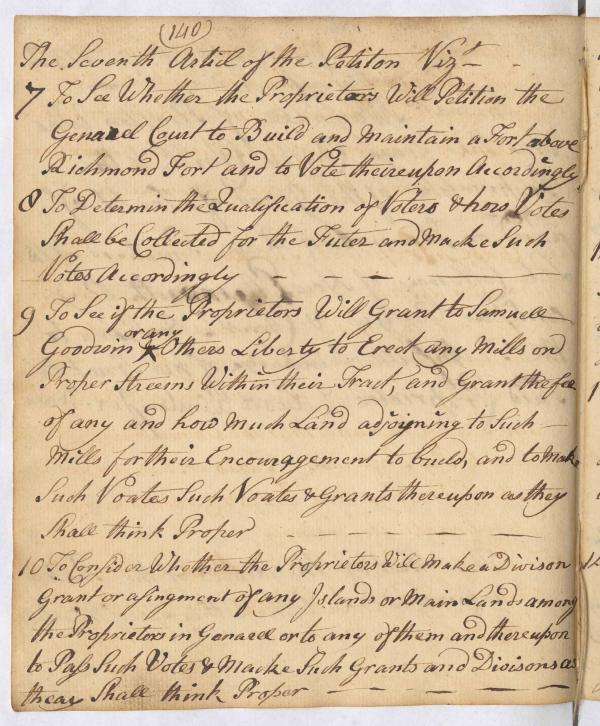 (140)
The Seventh Articl of the Petiton Vizt
7 To See Whether the Proprietors Will Petition the
Genarel Court to Build and Maintain a Fort above
Richmond Fort and to Vote theireupon Accordingly
8 To Determin the Qualification of Voters & how Votes
Shall be Collected for the Futer and Macke Such
Votes Accordingly
9 To See if the Proprietors Will Grant to Samuell
or any
Goodwin & Others Liberty to Erect any Mills on
Proper Streems Within their Tract, and Grant the fee
of any and how Much Land adjoyning to Such
Mills for their Encouragement to build, and to Make
Such Voates Such Voates & Grants thereupon as they
Shall think Proper
10 To Consider Whether the Proprietors Will Make a Divison
Grant or asingment of any Islands or Main Lands among
the Proprietors in Genarel or to any of them and thereupon
to Pass Such Votes & Macke Such Grants and Divisons as
theay Shall think Proper